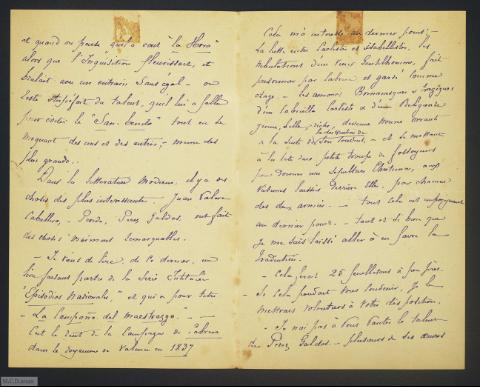 et quand on pense qu'il a écrit "la Hora"
alors que l'Inquisition florissait, et
brûlait avec un entrain sans égal - on
reste stupéfait du talent, qu'il lui a fallu
pour éviter le "San benito" tout en se
moquant des uns et des autres; même des
plus grands.
Dans la littérature Moderne, il y a des
choses des plus intéressantes. Juan Valera
Caballero, Pereda, Perez Galdos, ont fait
des choses vraiment remarquables.
- Je viens de lire, de ce dernier, un
livre faisant partie de la Serie intitulée
"Episodios Nacionales" et qui a pour titre
- La Campaña del Maestrazgo." -
C'est le récit de la Campagne de Cabrera
dans le Royaume de Valence en 1837
Cela m'a intéressé au dernier point; -
La lutte entre Carlistes et
tribulations d'un vieux Gentilhomme, fait
prisonnier par Cabrera et gardé comme
otage - les amours Romanesques & tragiques
d'un Cabecilla Carliste & d'une
jeune, belle, riche, devenue
à la suite de la disparition de son
à la tête d'une petite troupe de fossoyeurs
pour donner une sépulture Chrétienne, aux
Vaincus laissés derrière Elle, par chacune
des deux armées. - tout cela est empoignant
au dernier point. - tant et si bien que
je me suis laissé aller à en faire la
traduction.
- Cela ferait 25 feuilletons à peu près.
- Si cela pouvait vous convenir, je la
mettrais volontiers à votre disposition.
- Je n'ai pas à vous vanter le talent
de Perez Galdos - plusieurs de ses œuvres
M.C.Duenas